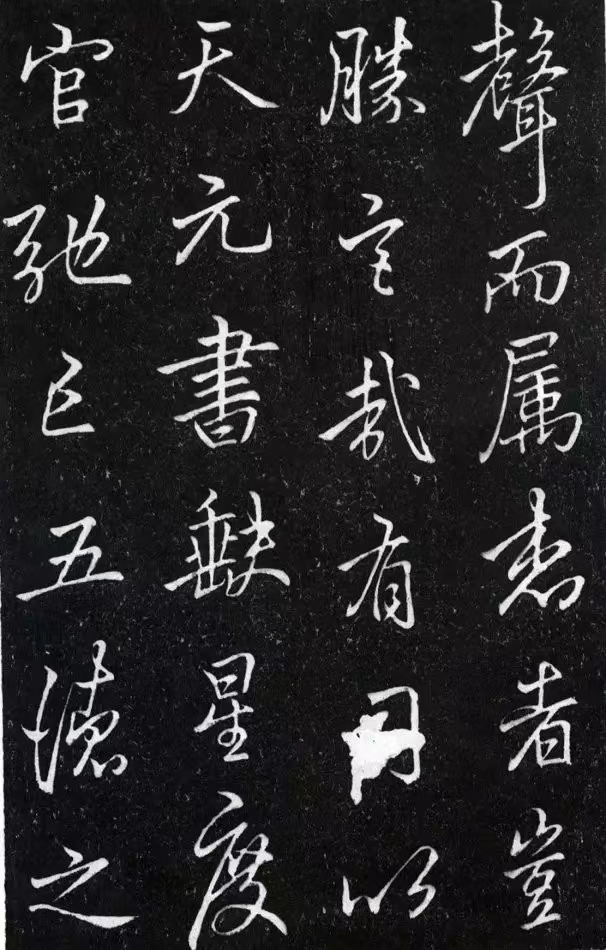 聲而属者豈
勝言哉有以
天元書缺星度
官弛五德之